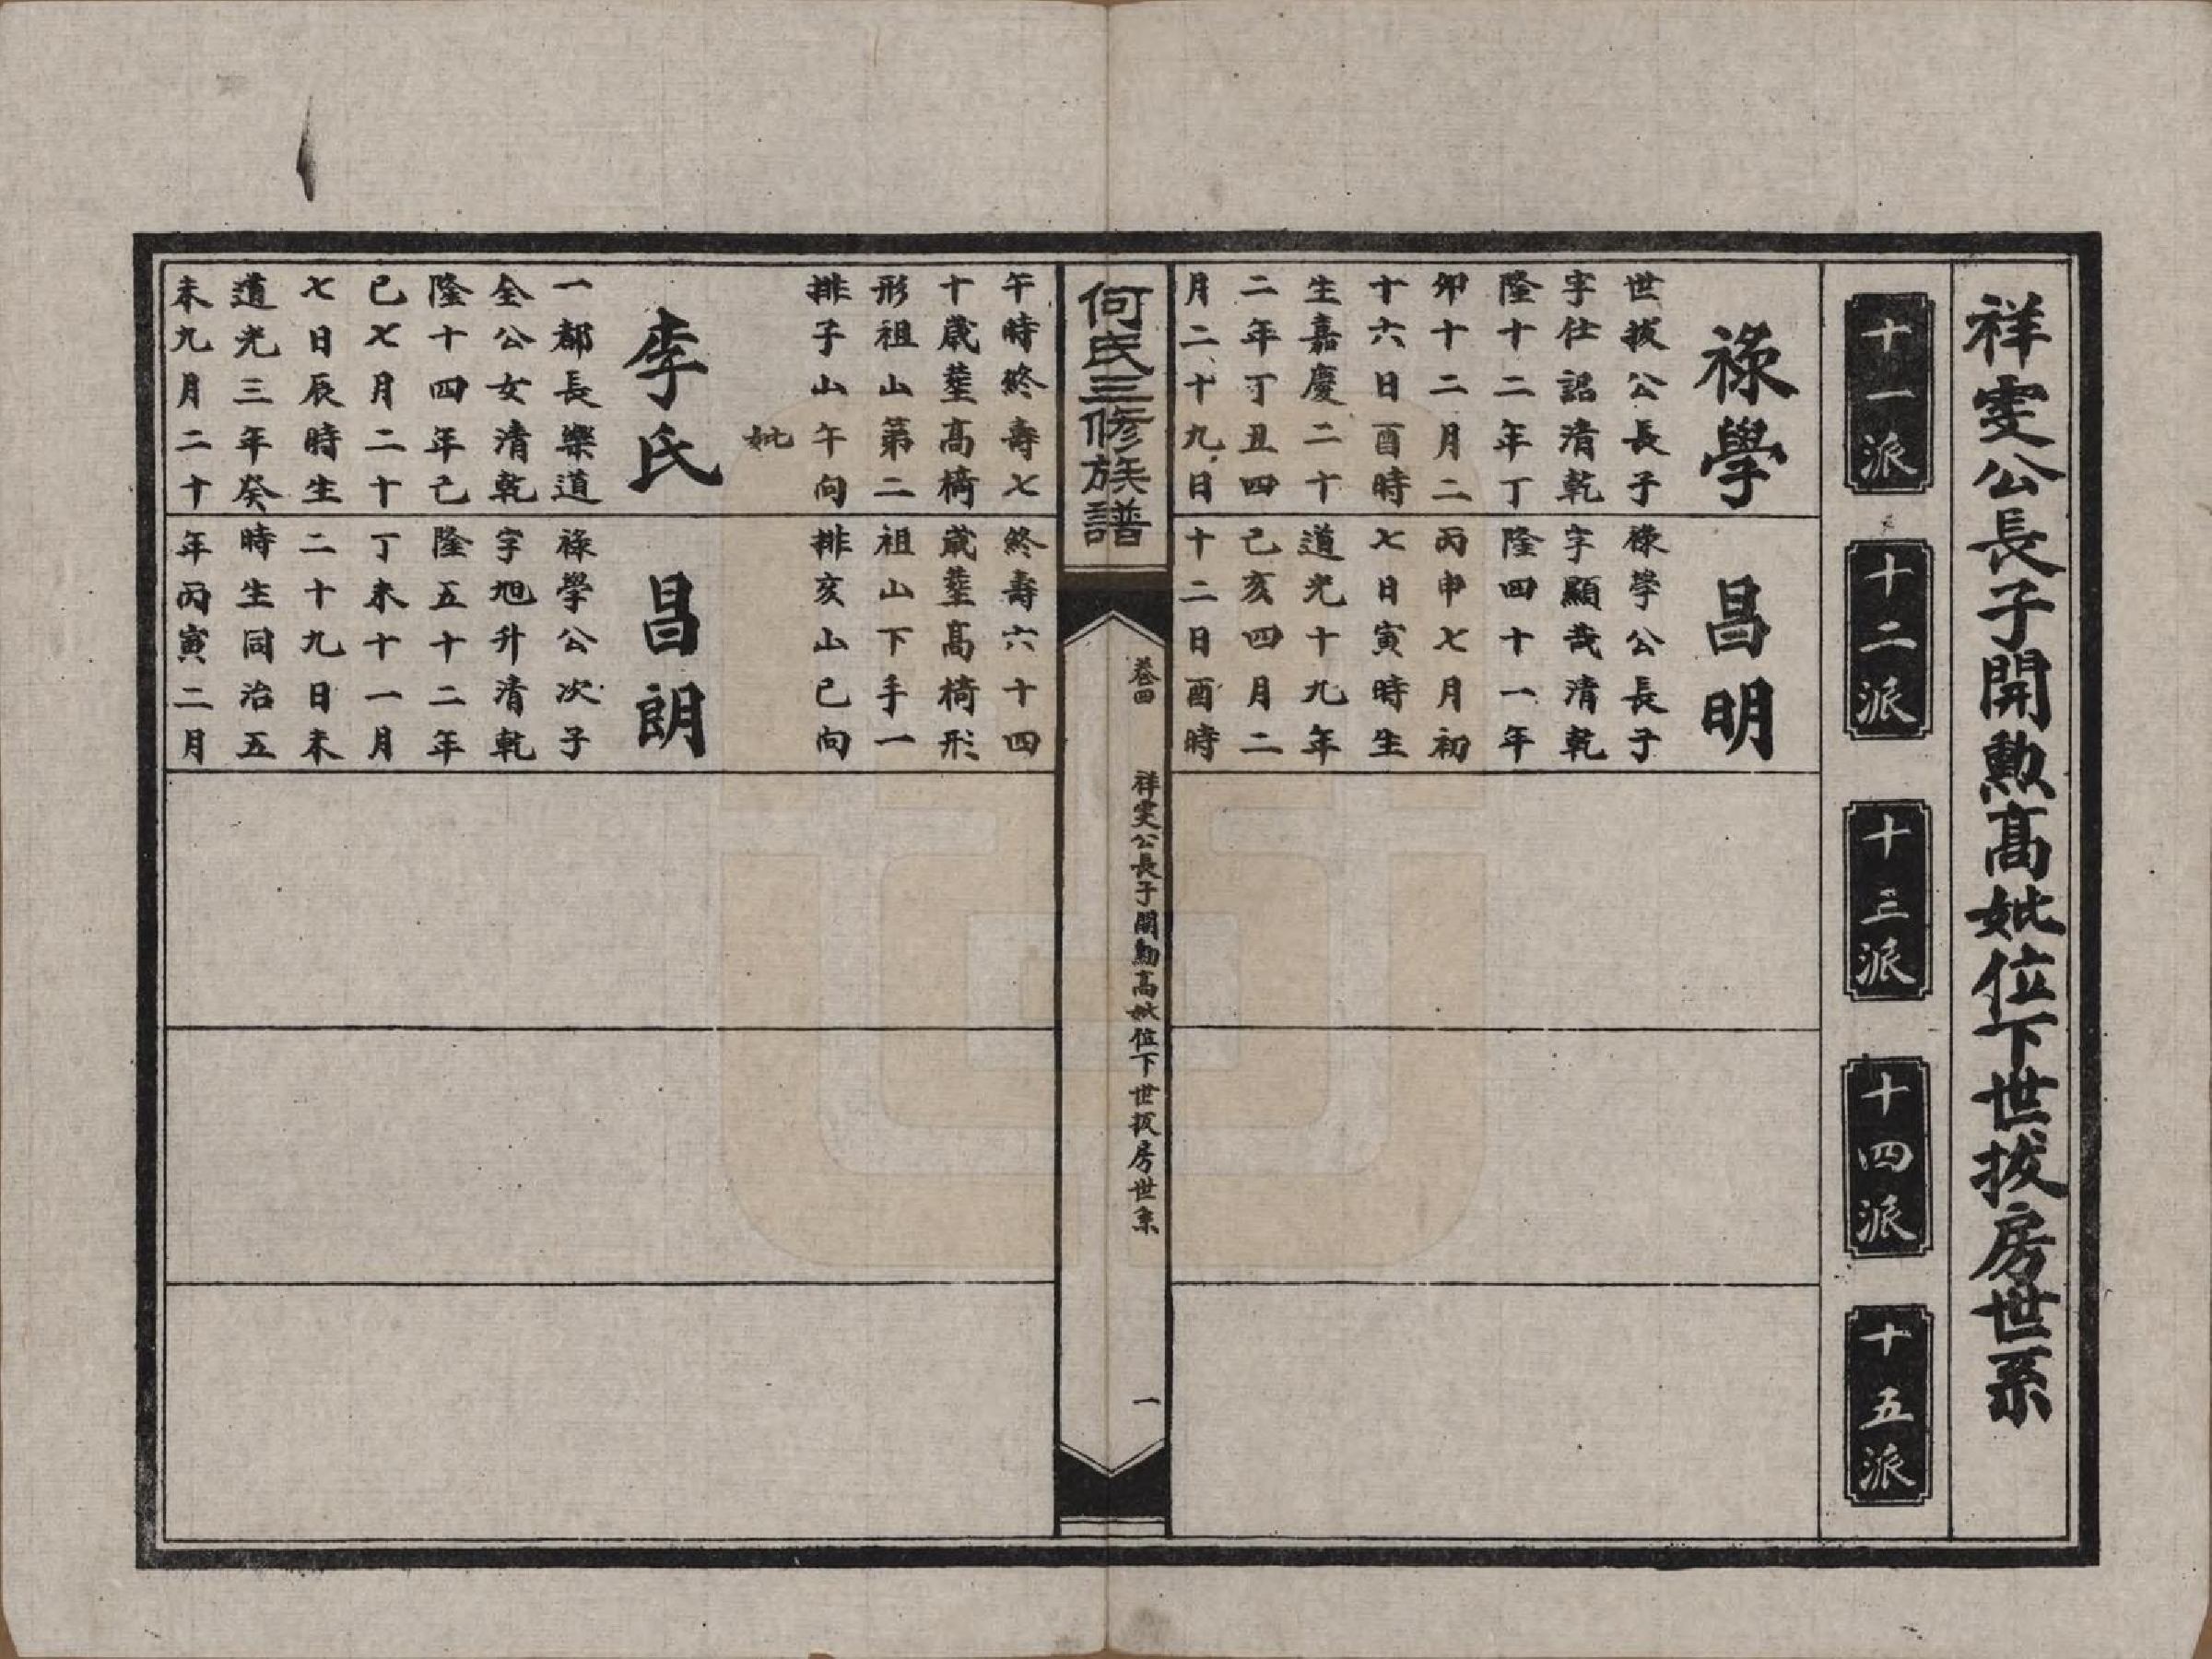 祥雯公長子開勲高妣位下世拔房世系
十一派
十二派
十三派
十四派
十五派
祿學
世拔公長子
字仕詔清乾
隆十二年丁
卯十二月二
十六日酉時
生嘉慶二十
二年丁丑四
月二十九日
午時終壽七
十歲塟高椅
形祖山第二
排子山午向
妣
李氏
一都長樂道
全公女清乾
隆十四年己
巳七月二十
七日辰時生
道光三年癸
未九月二十
昌明
祿學公長子
字顯哉清乾
隆四十一年
丙申七月初
七日寅時生
道光十九年
己亥四月二
十二日酉時
終壽六十四
歲塟高椅形
祖山下手一
排亥山巳向
昌朗
祿學公次子
字旭升清乾
隆五十二年
丁未十一月
二十九日未
時生同治五
年丙寅二月
何氏三修族譜
卷四
祥雯公長子開勲高妣位下世拔房世系
一